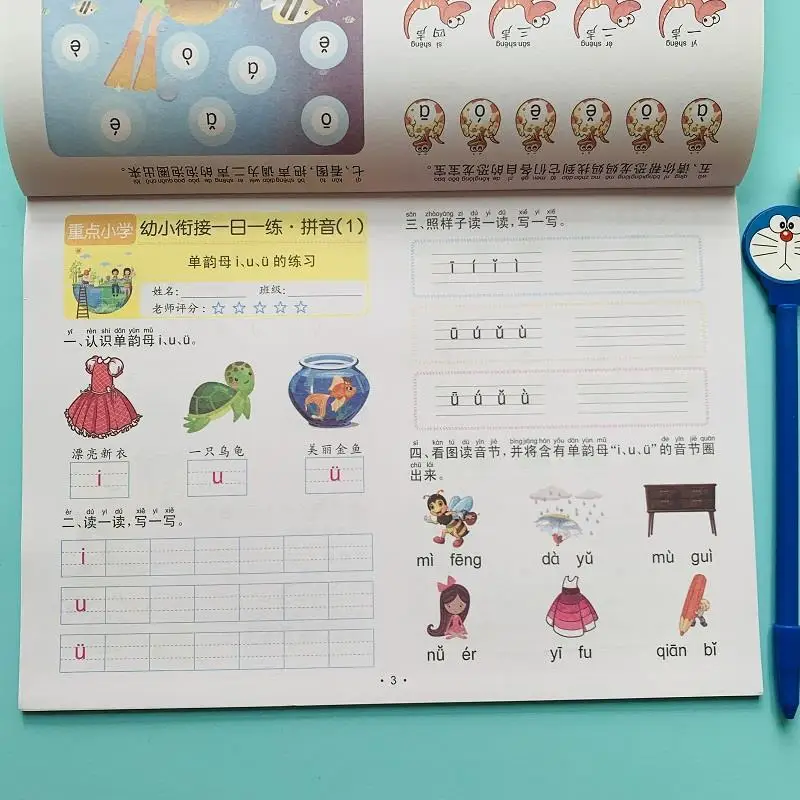 五、请你帮恐龙妈妈找到它们各自的恐龙宝宝。
à ō ě ē ó á
yī shēng èr shēng sān shēng sì shēng
一声 二声 三声 四声
七、看图，把声调为二声的泡泡圈出来。
重点小学
幼小衔接一日一练·拼音(1)
单韵母i、u、ü的练习
姓名: 班级:
老师评分:
yī rèn shi dān yùn mǔ
一、认识单韵母i、u、ü。
漂亮新衣 一只乌龟 美丽金鱼
i u ü
èr dú yi dú xiě yi xiě
二、读一读，写一写。
i
u
ü
sān zhàoyàng zi dú yi dú xiě yi xiě
三、照样子读一读，写一写。
ī í ǐ ì
ū ú ǔ ù
ǖ ǘ ǚ ǜ
sì kàn tú dú yīn jié bìngjiānghán yǒu dān yùn mǔ de yīn jié quān
四、看图读音节，并将含有单韵母“i、u、ü”的音节圈
chū lái
出来。
mì fēng dà yǔ mù guì
nǚ ér yī fu qiān bǐ
·3·